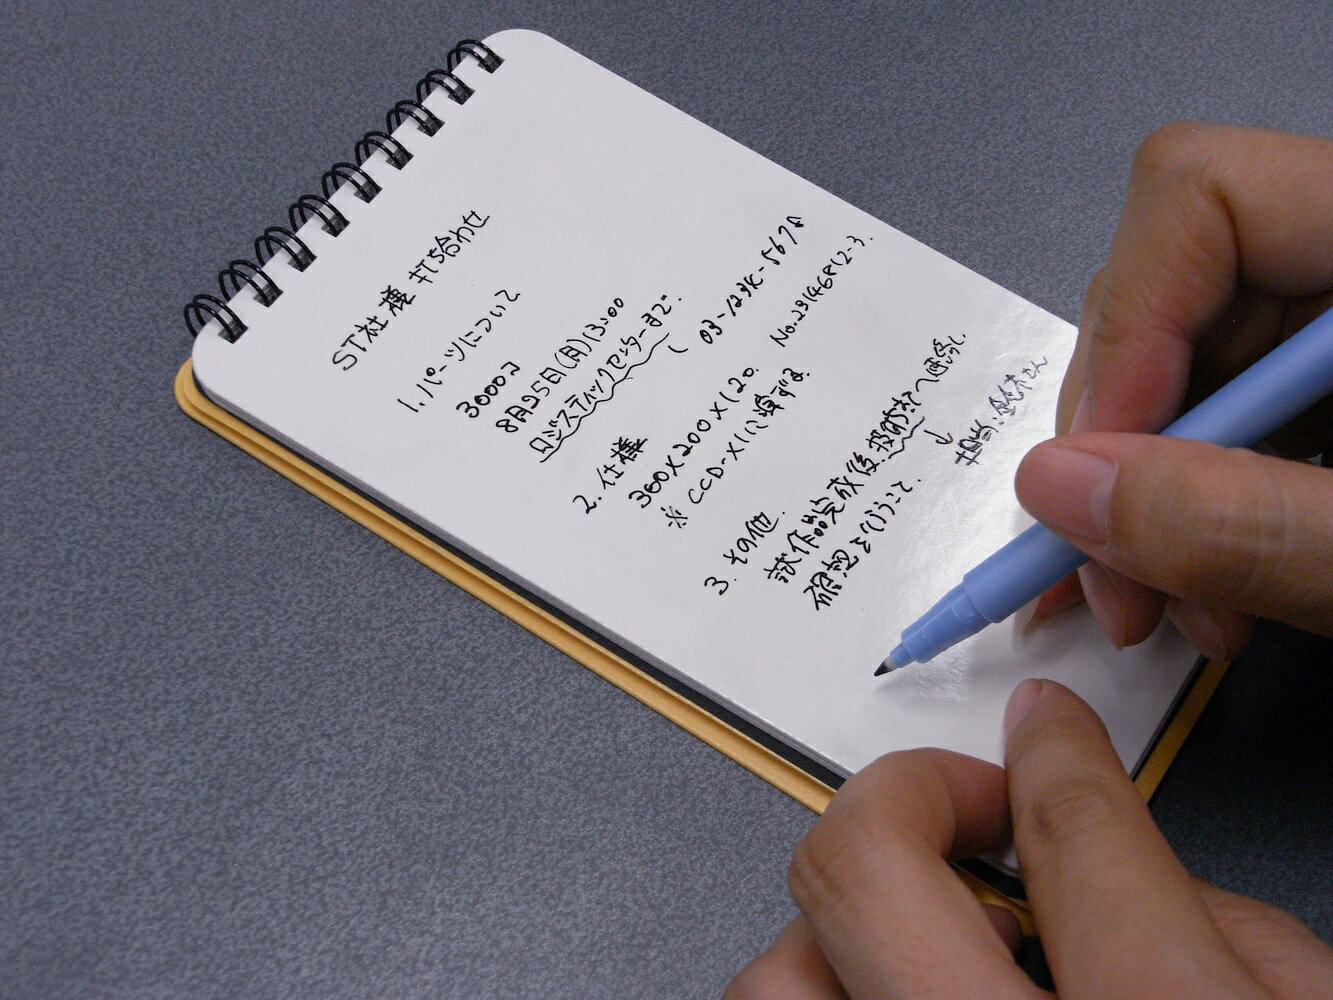 ST社様 打ち合わせ
1. パーツについて
3000コ
8月25日(月)13:00
ロジスティックセンターまで.
( 03-1234-5678
2. 仕様
360×200×120.
No.23146812-3.
※ CCD-X1に準ずる
3. その他.
試作品完成後、技術部へ連絡し、
確認を行うこと.
↓
担当:鈴木さん